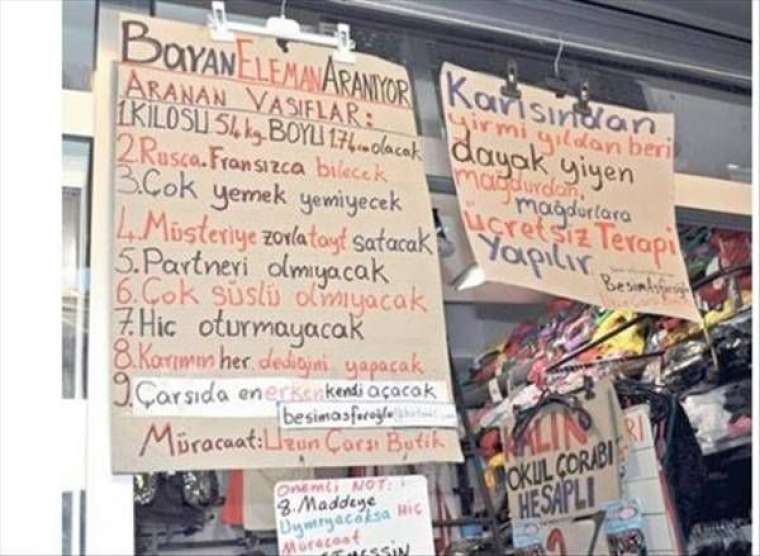 BAYAN ELEMAN ARANIYOR
ARANAN VASIFLAR:
1.KİLOSU 54 kg BOYU 1.74 cm olacak
2.Rusca.Fransızca bilecek
3.Çok yemek yemiyecek
4.Müşteriye zorla tayt satacak
5.Partneri olmıyacak
6.Çok süslü olmıyacak
7.Hiç oturmayacak
8.Karımın her dediğini yapacak
9.Çarşıda en erken kendi açacak
besimasfaroğlu
Müracaat:Uzun Çarşı Butik
Önemli NOT:
8.Maddeye
Uymıyacaksa Hiç
Müracaat
ETMESSİN
Karısından
yirmi yıldan beri
dayak yiyen
mağdurdan,
mağdurlara
ücretsiz Terapi
Yapılır
Besim Asfaroğlu
KALIN
OKUL ÇORABI
HESAPLI